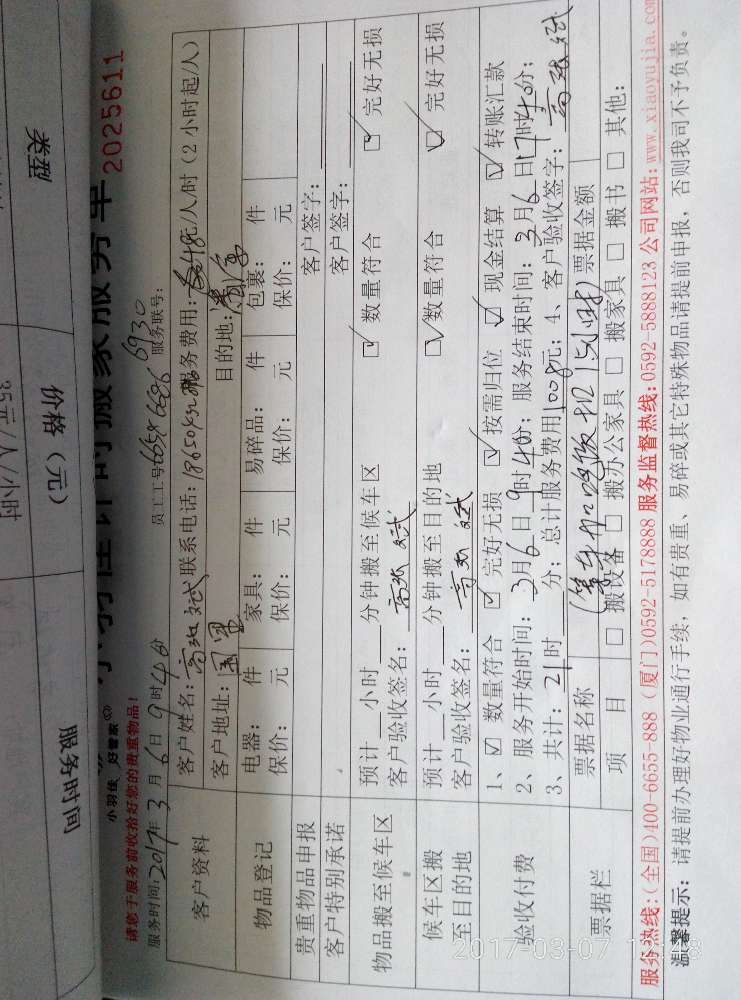 类型
价格（元）
服务时间
35元/人/小时
搬家服务单 2025611
小羽佳 好管家
请您于服务前收拾好您的贵重物品！
服务时间: 2017年 3月 6日 9时40分 员工工号 6930 服务联号:
客户资料
客户姓名: 联系电话: 服务费用: 48元/人/时（2小时起/人）
客户地址: 目的地:
物品登记
电器： 件 家具： 件 易碎品： 件 包裹： 件
保价： 元 保价： 元 保价： 元 保价： 元
贵重物品申报 客户签字：
客户特别承诺 客户签字：
物品搬至候车区
预计 小时 分钟搬至候车区 ☑ 数量符合 ☑ 完好无损
客户验收签名：
候车区搬至目的地
预计 小时 分钟搬至目的地 ☑ 数量符合 ☑ 完好无损
客户验收签名：
验收付费
1、☑ 数量符合 ☑ 完好无损 ☑ 按需归位 ☑ 现金结算 ☑ 转账汇款
2、服务开始时间：3月6日9时40分；服务结束时间：3月6日17时40分；
3、共计：21时 分；总计服务费用1008元；4、客户验收签字：
票据栏
票据名称 票据金额
项 目 □ 搬设备 □ 搬办公家具 □ 搬家具 □ 搬书 □ 其他:
服务热线:（全国）400-6655-888（厦门）0592-5178888 服务监督热线:0592-5888123 公司网站:www.xiaoyujia.com
温馨提示：请提前办理好物业通行手续，如有贵重、易碎或其它特殊物品请提前申报，否则我司不予负责。
2017-03-07